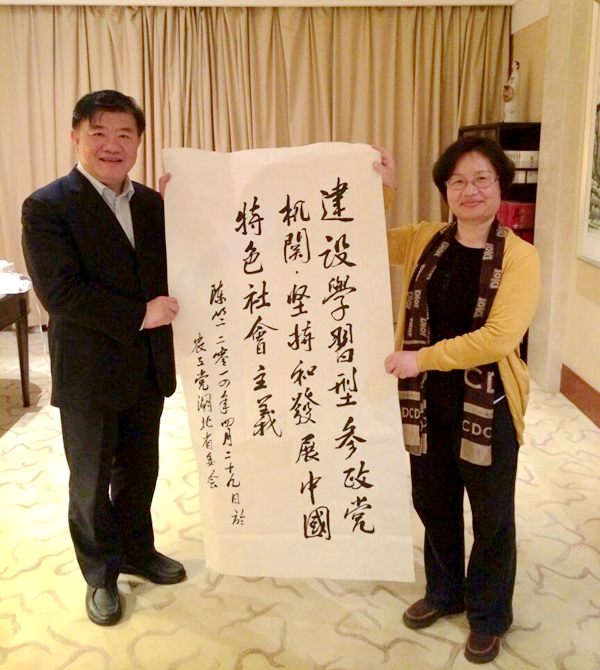 建设學習型参政党
机関·坚持和發展中國
特色社會主義
陈竺 二零一四年四月二十九日於
农工党湖北省委会
Dior
Dior